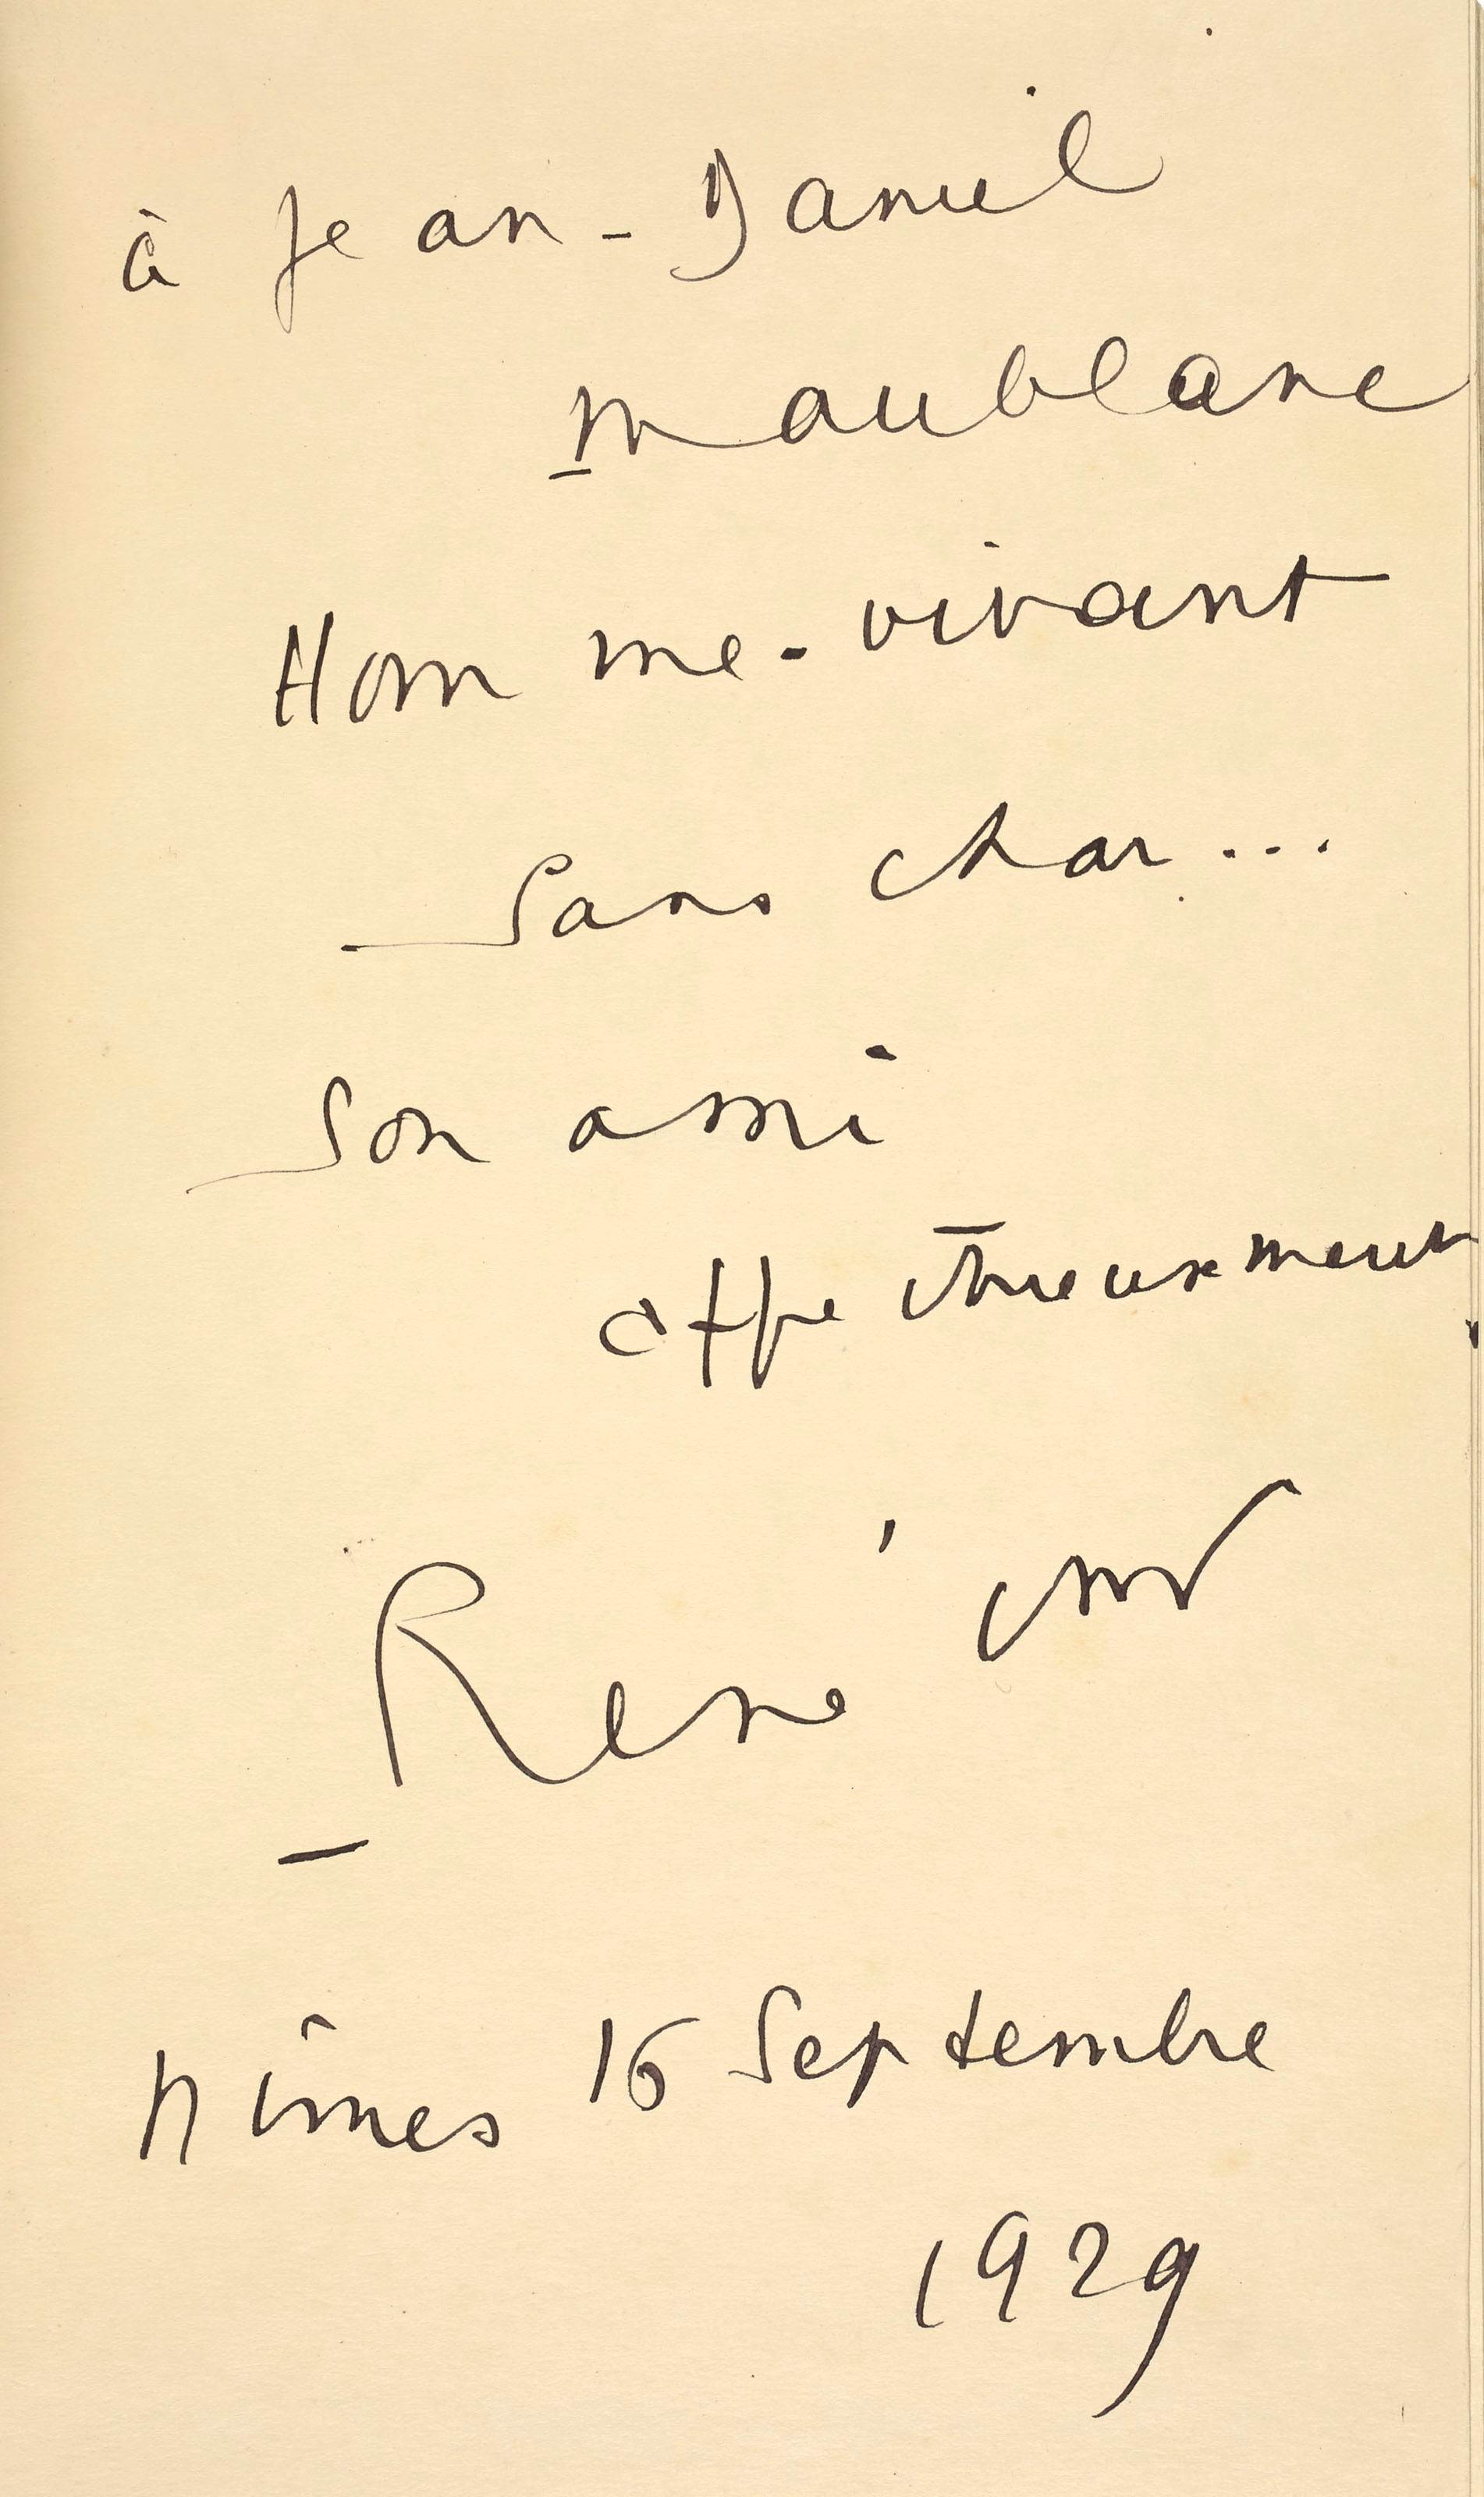 à Jean-Daniel
Maublanc
Homme-vivant
Sans char...
Son ami
affectueusement
René Char
Nîmes 16 Septembre
1929